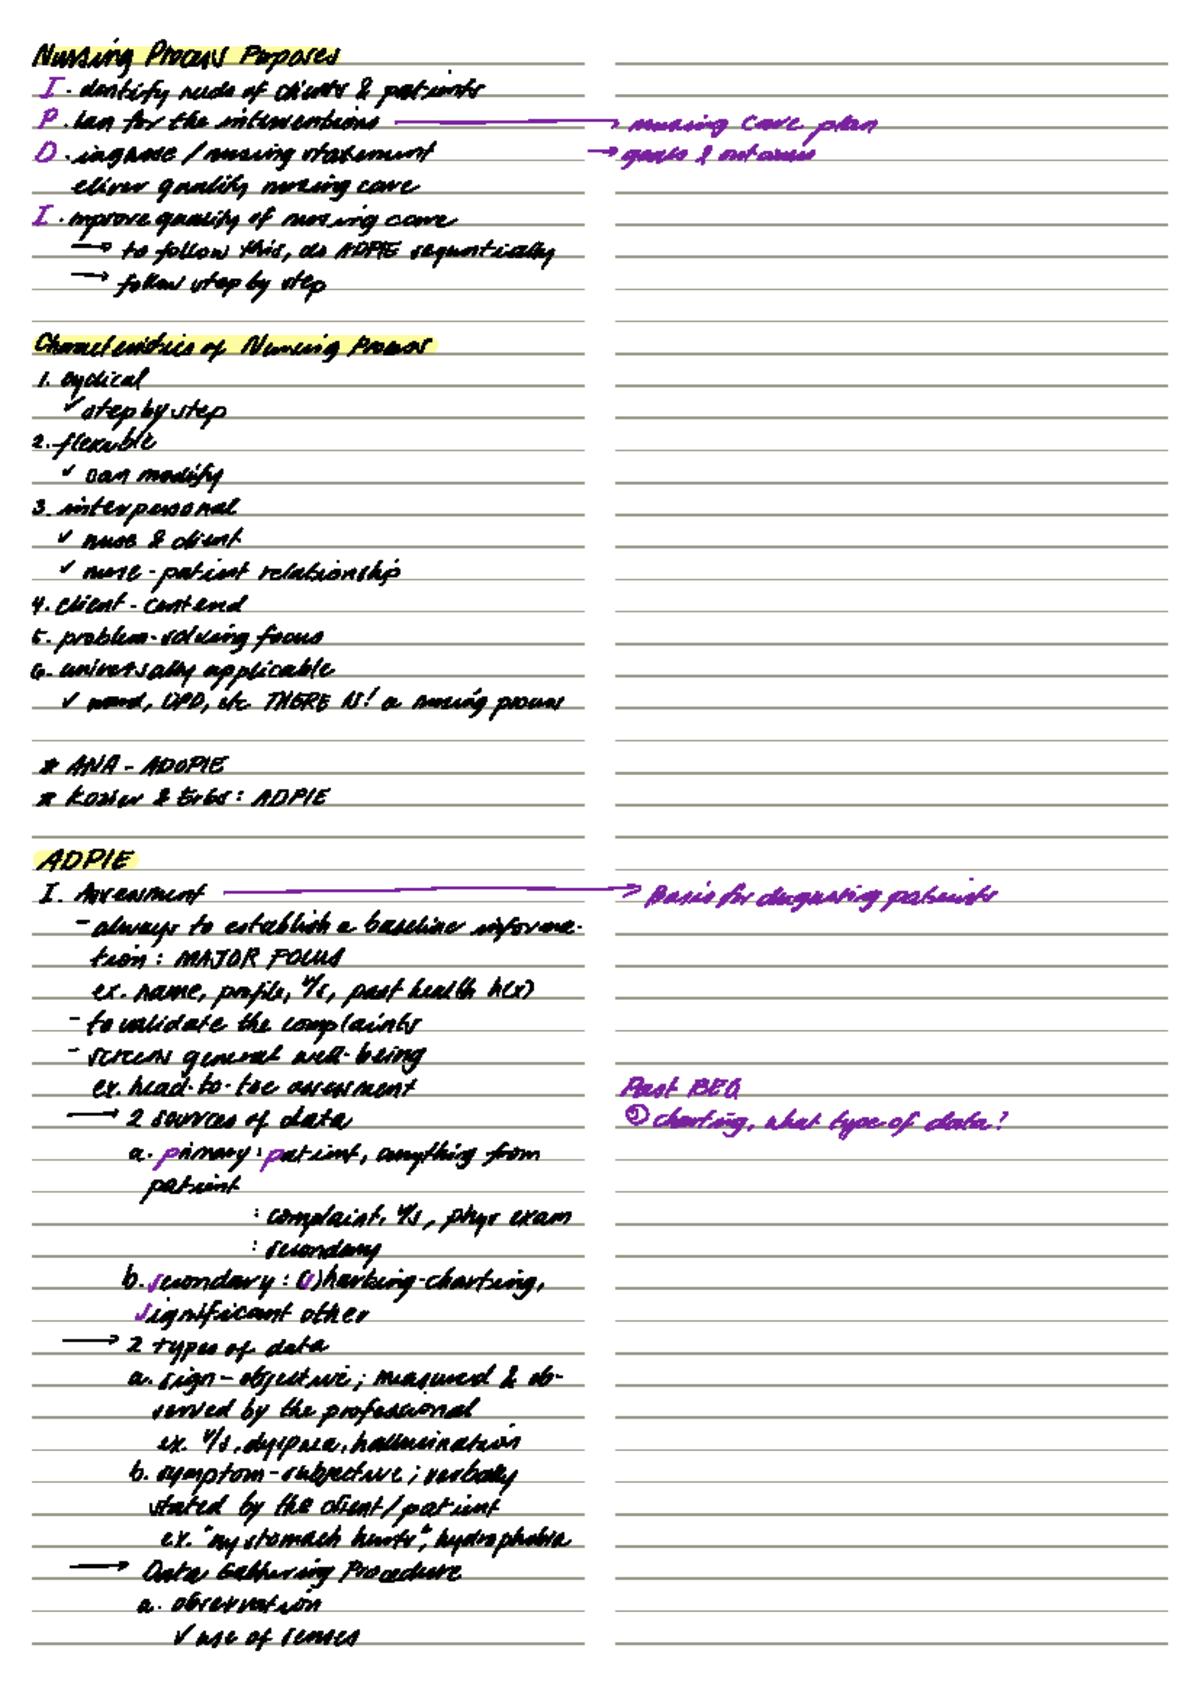 Nursing Process Purposes
I. dentify needs of clients & patients
P. lan for the interventions → nursing care plan
D. iagnose / nursing statement → goals & outcomes
eliver quality nursing care
I. mprove quality of nursing care
→ to follow this, do ADPIE sequentially
→ follow step by step
Characteristics of Nursing Process
1. cyclical
✓ step by step
2. flexible
✓ can modify
3. interpersonal
✓ nurse & client
✓ nurse - patient relationship
4. client - centered
5. problem-solving focus
6. universally applicable
✓ ward, OPD, etc THERE IS! a nursing process
* ANA - ADOPIE
* Kozier & Erbs : ADPIE
ADPIE
I. Assessment → Basis for diagnosing patients
- always to establish a baseline informa-
tion : MAJOR FOCUS
ex. name, profile, v/s, past health h(x)
- to validate the complaints
- screens general well-being
ex. head-to-toe assessment
→ 2 sources of data
a. primary : patient, anything from
patient
: complaint, v/s, phys exam
: secondary
b. secondary : (s)harting-charting,
significant other
→ 2 types of data
a. sign - objective ; measured & ob-
served by the professional
ex. v/s, dyspnea, hallucination
b. symptom - subjective ; verbally
stated by the client / patient
ex. "my stomach hurts", hydrophobia
→ Data Gathering Procedure
a. observation
✓ use of senses
Past BEQ
charting, what type of data?